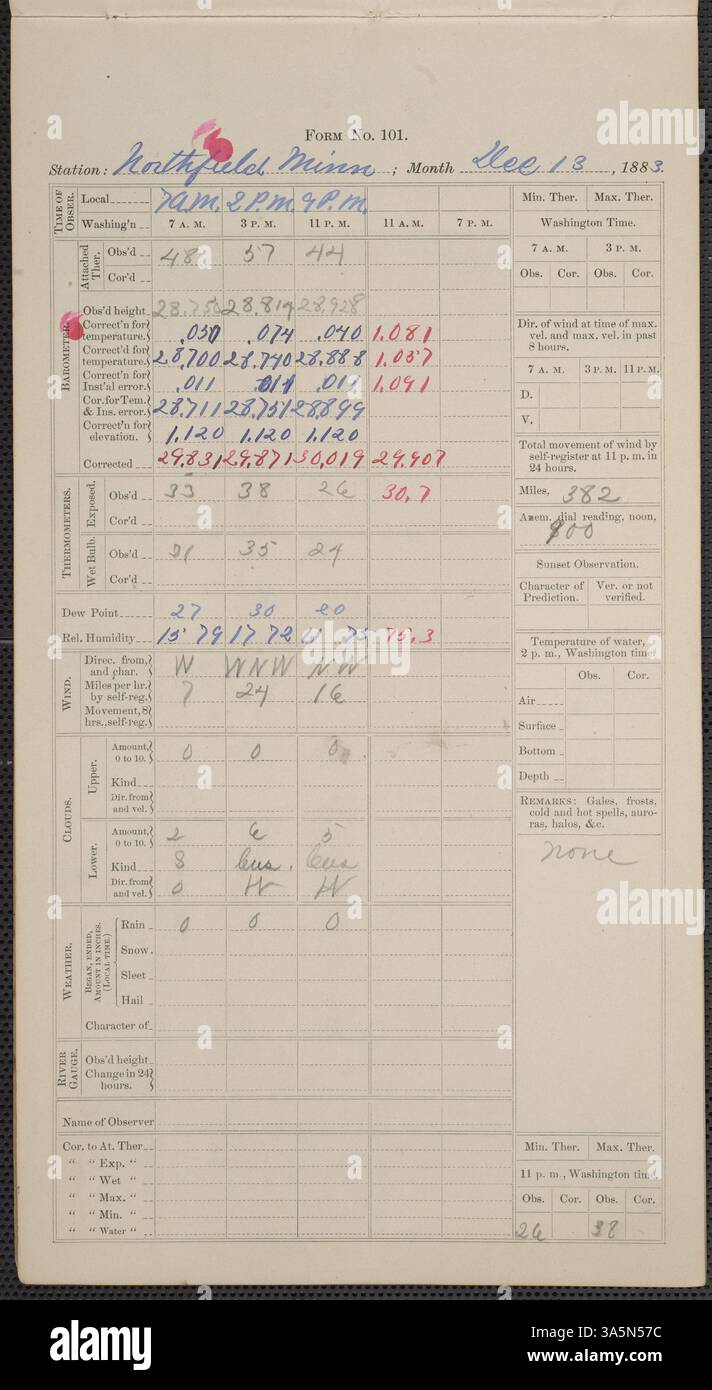 Form No. 101.
Station: Northfield Minn ; Month Dec 13 , 1883.
TIME OF OBSER. Local 7 A.M. 2 P.M. 9 P.M. Min. Ther. Max. Ther.
Washing'n 7 A. M. 3 P. M. 11 P. M. 11 A. M. 7 P. M. Washington Time.
Attached Ther. Obs'd 48 57 44 7 A. M. 3 P. M.
Cor'd Obs. Cor. Obs. Cor.
BAROMETER. Obs'd height 28.750 28.814 28.928
Correct'n for temperature. .050 .074 .040 1.081 Dir. of wind at time of max. vel. and max. vel. in past 8 hours.
Correct'd for temperature. 28,700 28,740 28.888 1.037
Correct'n for Inst'al error. .011 .011 .011 1.091 7 A. M. 3 P.M. 11 P.M.
Cor. for Tem. & Ins. error. 28,711 28,751 28,899 D.
Correct'n for elevation. 1.120 1.120 1.120 V.
Corrected 29.831 29.871 30,019 29.907 Total movement of wind by self-register at 11 p. m. in 24 hours.
THERMOMETERS. Exposed. Obs'd 33 38 26 30,7 Miles, 382
Cor'd Anem. dial reading, noon, 900
Wet Bulb. Obs'd 31 35 24
Cor'd Sunset Observation.
Character of Prediction. Ver. or not verified.
Dew Point 27 30 20
Rel. Humidity 15 79 17 72 75 75,3 Temperature of water, 2 p. m., Washington time.
WIND. Direc. from, and char. W WNW NW Obs. Cor.
Miles per hr. by self-reg. 7 24 16 Air
Movement, 8 hrs., self-reg. Surface
CLOUDS. Upper. Amount, 0 to 10. 0 0 0 Bottom
Kind Depth
Dir. from and vel. REMARKS: Gales, frosts, cold and hot spells, auroras, halos, &c.
Lower. Amount, 0 to 10. 2 6 5
Kind S Cus. Cus none
Dir. from and vel. 0 W W
WEATHER. BEGAN, ENDED, AMOUNT IN INCHES. (LOCAL TIME.) Rain 0 0 0
Snow.
Sleet
Hail
Character of
RIVER GAUGE. Obs'd height
Change in 24 hours.
Name of Observer
Cor. to At. Ther Min. Ther. Max. Ther.
" " Exp. " 11 p. m., Washington time.
" " Wet "
" " Max. " Obs. Cor. Obs. Cor.
" " Min. "
" " Water " 26 38
alamy
Image ID: 3A5N57C
www.alamy.com